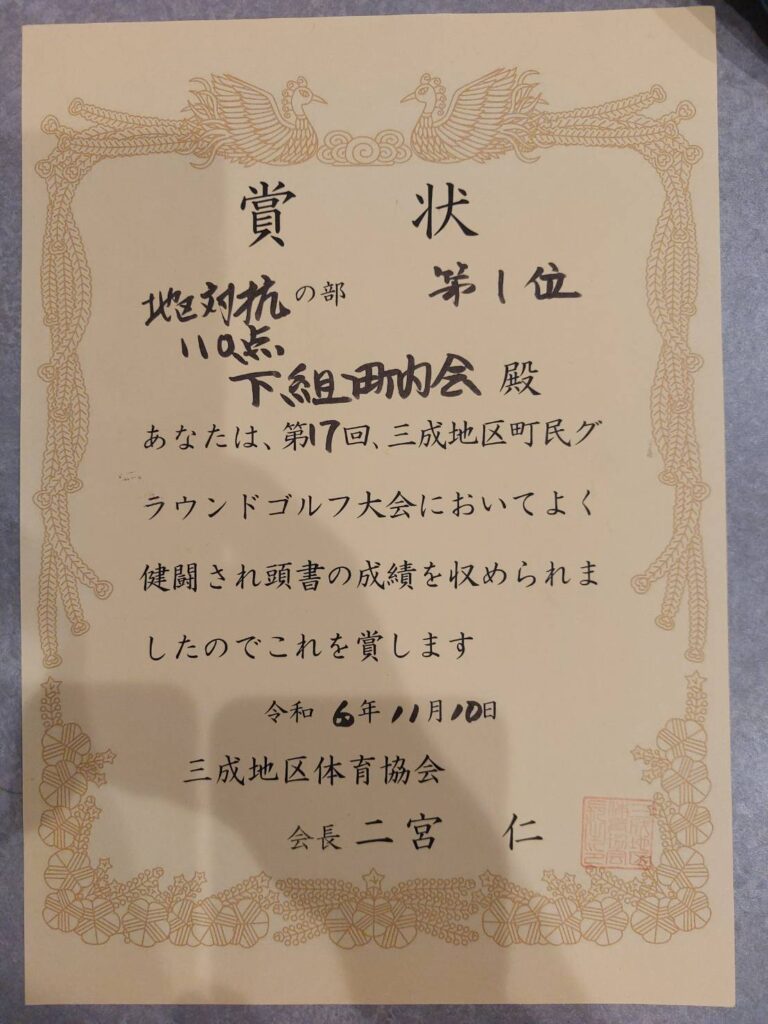 賞状
地区対抗の部 第1位
110点
下組町内会 殿
あなたは、第17回、三成地区町民グ
ラウンドゴルフ大会においてよく
健闘され頭書の成績を収められま
したのでこれを賞します
令和 6年 11月10日
三成地区体育協会
会長 二宮 仁